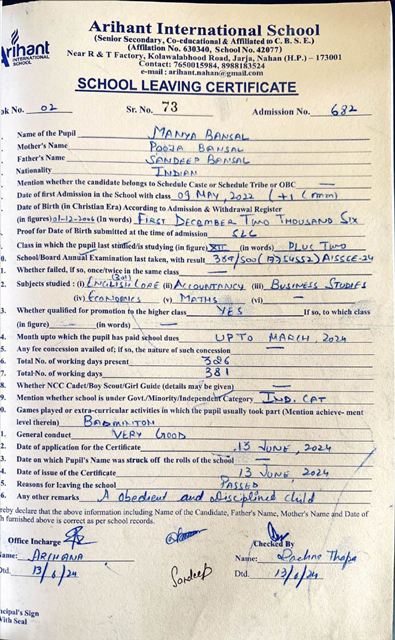 Arihant
INTERNATIONAL
SCHOOL
Arihant International School
(Senior Secondary, Co-educational & Affiliated to C. B. S. E.)
(Affilation No. 630340, School No. 42077)
Near R & T Factory, Kolawalabhood Road, Jarja, Nahan (H.P.) – 173001
Contact: 7650015984, 8988183524
e-mail : arihant.nahan@gmail.com
SCHOOL LEAVING CERTIFICATE
ok No. 02 Sr. No. 73 Admission No. 682
Name of the Pupil MANYA BANSAL
Mother's Name POOJA BANSAL
Father's Name SANDEEP BANSAL
Nationality INDIAN
Mention whether the candidate belongs to Schedule Caste or Schedule Tribe or OBC —
Date of first Admission in the School with class 09 MAY, 2022 (+1 Comm)
Date of Birth (in Christian Era) According to Admission & Withdrawal Register
(in figures) 01-12-2006 (In words) FIRST DECEMBER TWO THOUSAND SIX
Proof for Date of Birth submitted at the time of admission SLC
Class in which the pupil last studied/is studying (in figure) XII (in words) PLUS TWO
0. School/Board Annual Examination last taken, with result AISSCE-24
1. Whether failed, if so, once/twice in the same class —
2. Subjects studied : (i) ENGLISH CORE (301) (ii) ACCOUNTANCY (iii) BUSINESS STUDIES
(iv) ECONOMICS (v) MATHS (vi) —
3. Whether qualified for promotion to the higher class YES If so, to which class
(in figure) — (in words) —
4. Month upto which the pupil has paid school dues UPTO MARCH, 2024
5. Any fee concession availed of; if so, the nature of such concession —
6. Total No. of working days present 326
7. Total-No. of working days 381
8. Whether NCC Cadet/Boy Scout/Girl Guide (details may be given) —
9. Mention whether school is under Govt./Minority/Independent Category IND. CAT
0. Games played or extra-curricular activities in which the pupil usually took part (Mention achieve- ment
level therein) BADMINTON
1. General conduct VERY GOOD
2. Date of application for the Certificate 13 JUNE, 2024
3. Date on which Pupil's Name was struck off the rolls of the school —
4. Date of issue of the Certificate 13 JUNE, 2024
5. Reasons for leaving the school PASSED
6. Any other remarks A obedient and disciplined child
reby declare that the above information including Name of the Candidate, Father's Name, Mother's Name and Date of
h furnished above is correct as per school records.
Office Incharge
Checked By
ame: ARIHANA Sandeep Name: Rachna Thapa
Dtd. 13/6/24 Dtd. 13/6/24
ncipal's Sign
With Seal